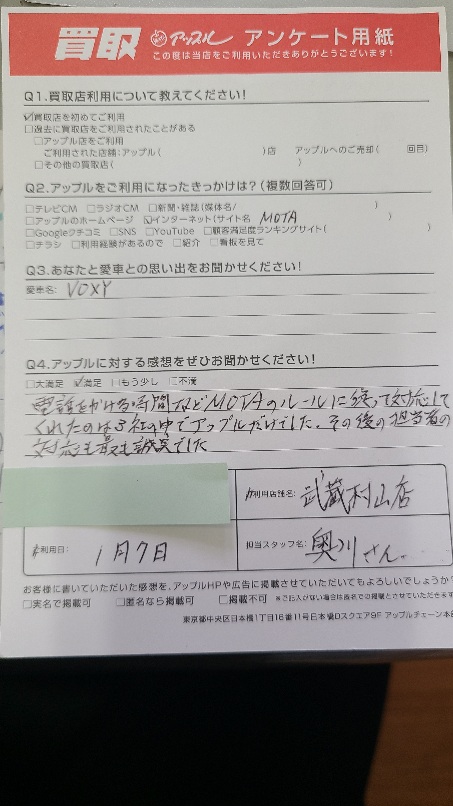 買取 アップル アンケート用紙
この度は当店をご利用いただきありがとうございます!
Q1.買取店利用について教えてください!
☑買取店を初めてご利用
□過去に買取店をご利用されたことがある
□アップル店をご利用
ご利用された店舗:アップル( )店 アップルへのご売却( 回目)
□その他の買取店( )
Q2.アップルをご利用になったきっかけは?(複数回答可)
□テレビCM □ラジオCM □新聞・雑誌(媒体名/ )
□アップルのホームページ ☑インターネット(サイト名 MOTA )
□Googleクチコミ □SNS □YouTube □顧客満足度ランキングサイト( )
□チラシ □利用経験があるので □紹介 □看板を見て
Q3.あなたと愛車との思い出をお聞かせください!
愛車名: VOXY
Q4.アップルに対する感想をぜひお聞かせください!
□大満足 ☑満足 □もう少し □不満
電話をかける時間などMOTAのルールに従って対応して
くれたのは3社の中でアップルだけでした。その後の担当者の
対応も最も誠実でした
ご利用店舗名: 武蔵村山店
ご利用日: 1月7日
担当スタッフ名: 奥川さん
お客様に書いていただいた感想を、アップルHPや広告に掲載させていただいてもよろしいでしょうか?
□実名で掲載可 □匿名なら掲載可 □掲載不可 ※ご記入がない場合は匿名での掲載とさせていただきます
東京都中央区日本橋1丁目16番11号日本橋Dスクエア9F アップルチェーン本